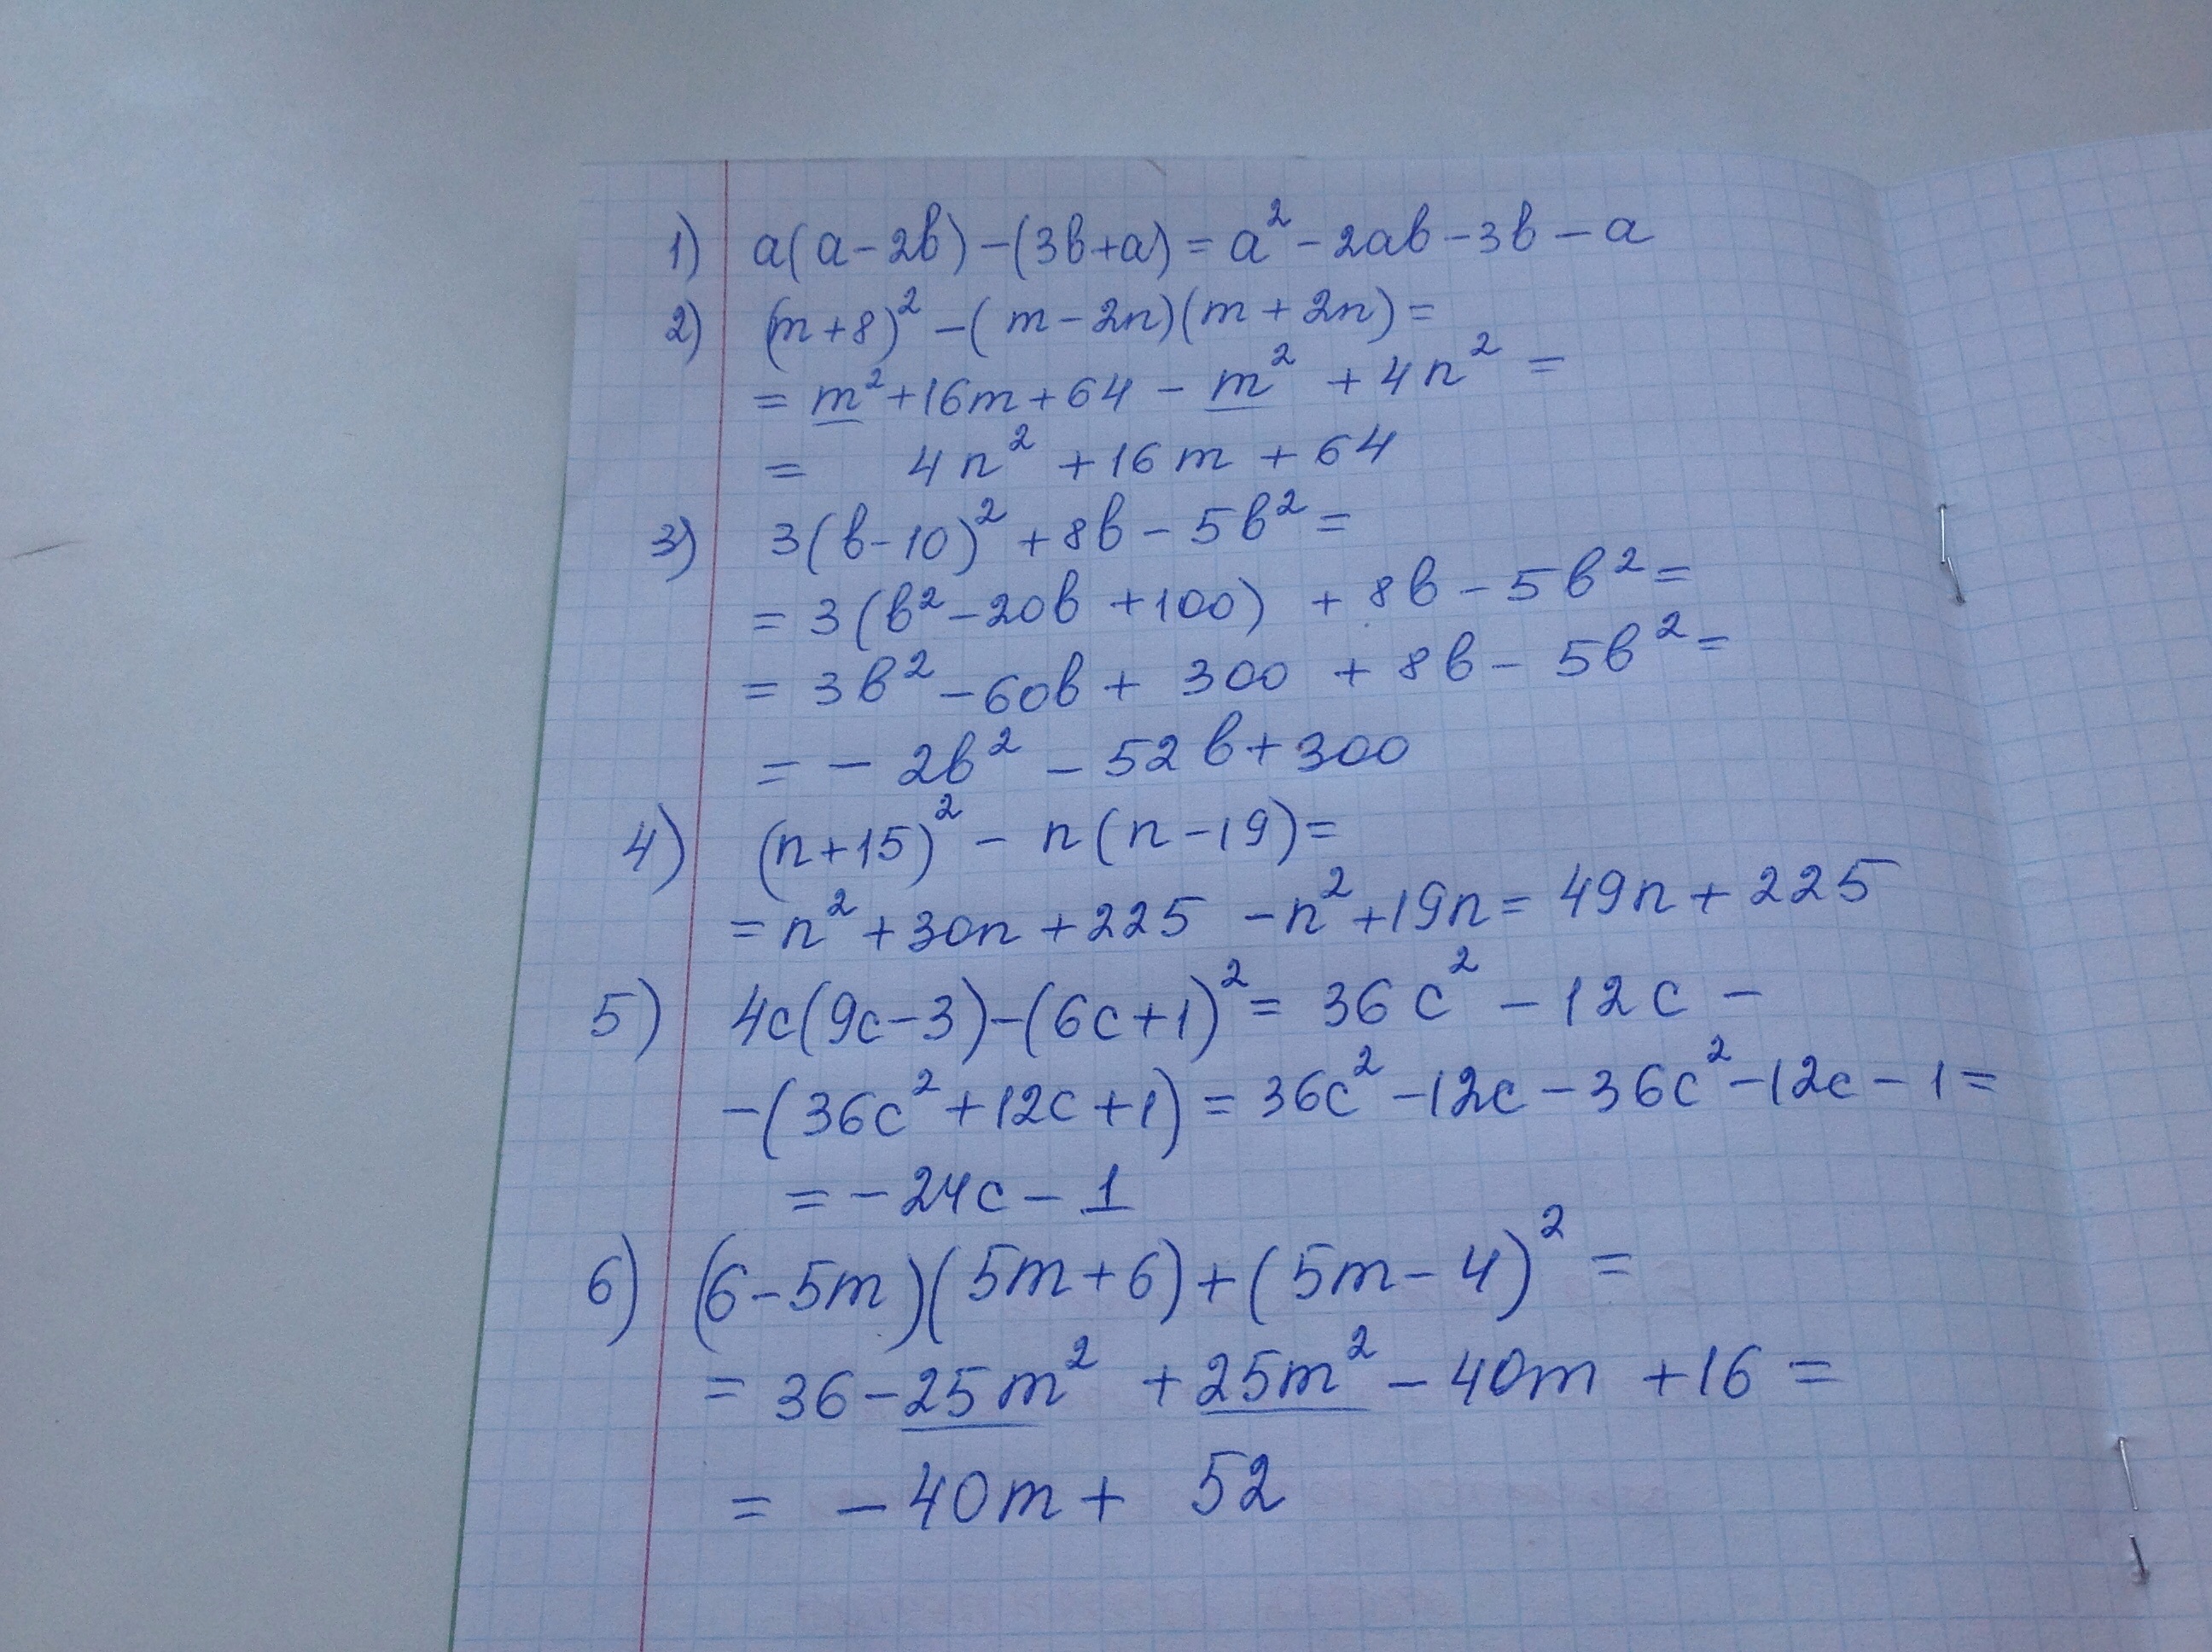 1) a(a-2b)-(3b+a)=a²-2ab-3b-a
2) (m+8)²-(m-2n)(m+2n)=
=m²+16m+64-m²+4n²=
= 4n²+16m+64
3) 3(b-10)²+8b-5b²=
=3(b²-20b+100)+8b-5b²=
=3b²-60b+300+8b-5b²=
=-2b²-52b+300
4) (n+15)²-n(n-19)=
=n²+30n+225-n²+19n=49n+225
5) 4c(9c-3)-(6c+1)²=36c²-12c-
-(36c²+12c+1)=36c²-12c-36c²-12c-1=
=-24c-1
6) (6-5m)(5m+6)+(5m-4)²=
=36-25m²+25m²-40m+16=
=-40m+52